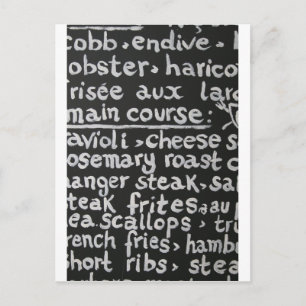 cobb, endive,
lobster, harico
frisée aux lar
main course:
ravioli, cheese s
rosemary roast c
hanger steak, sal
steak frites, au p
sea scallops, tru
french fries, hambu
short ribs, stea